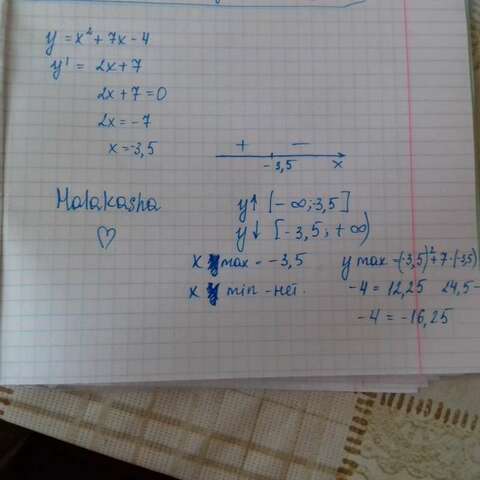 y = x² + 7x - 4
y' = 2x + 7
2x + 7 = 0
2x = -7
x = 3,5
Malakasha
♡
+ -3,5 − x
y↑ [-∞; 3,5]
y↓ [-3,5; +∞)
x max = -3,5
x min - нет.
y max = (-3,5)² + 7·(-3,5)
-4 = 12,25 24,5 -
-4 = -16,25